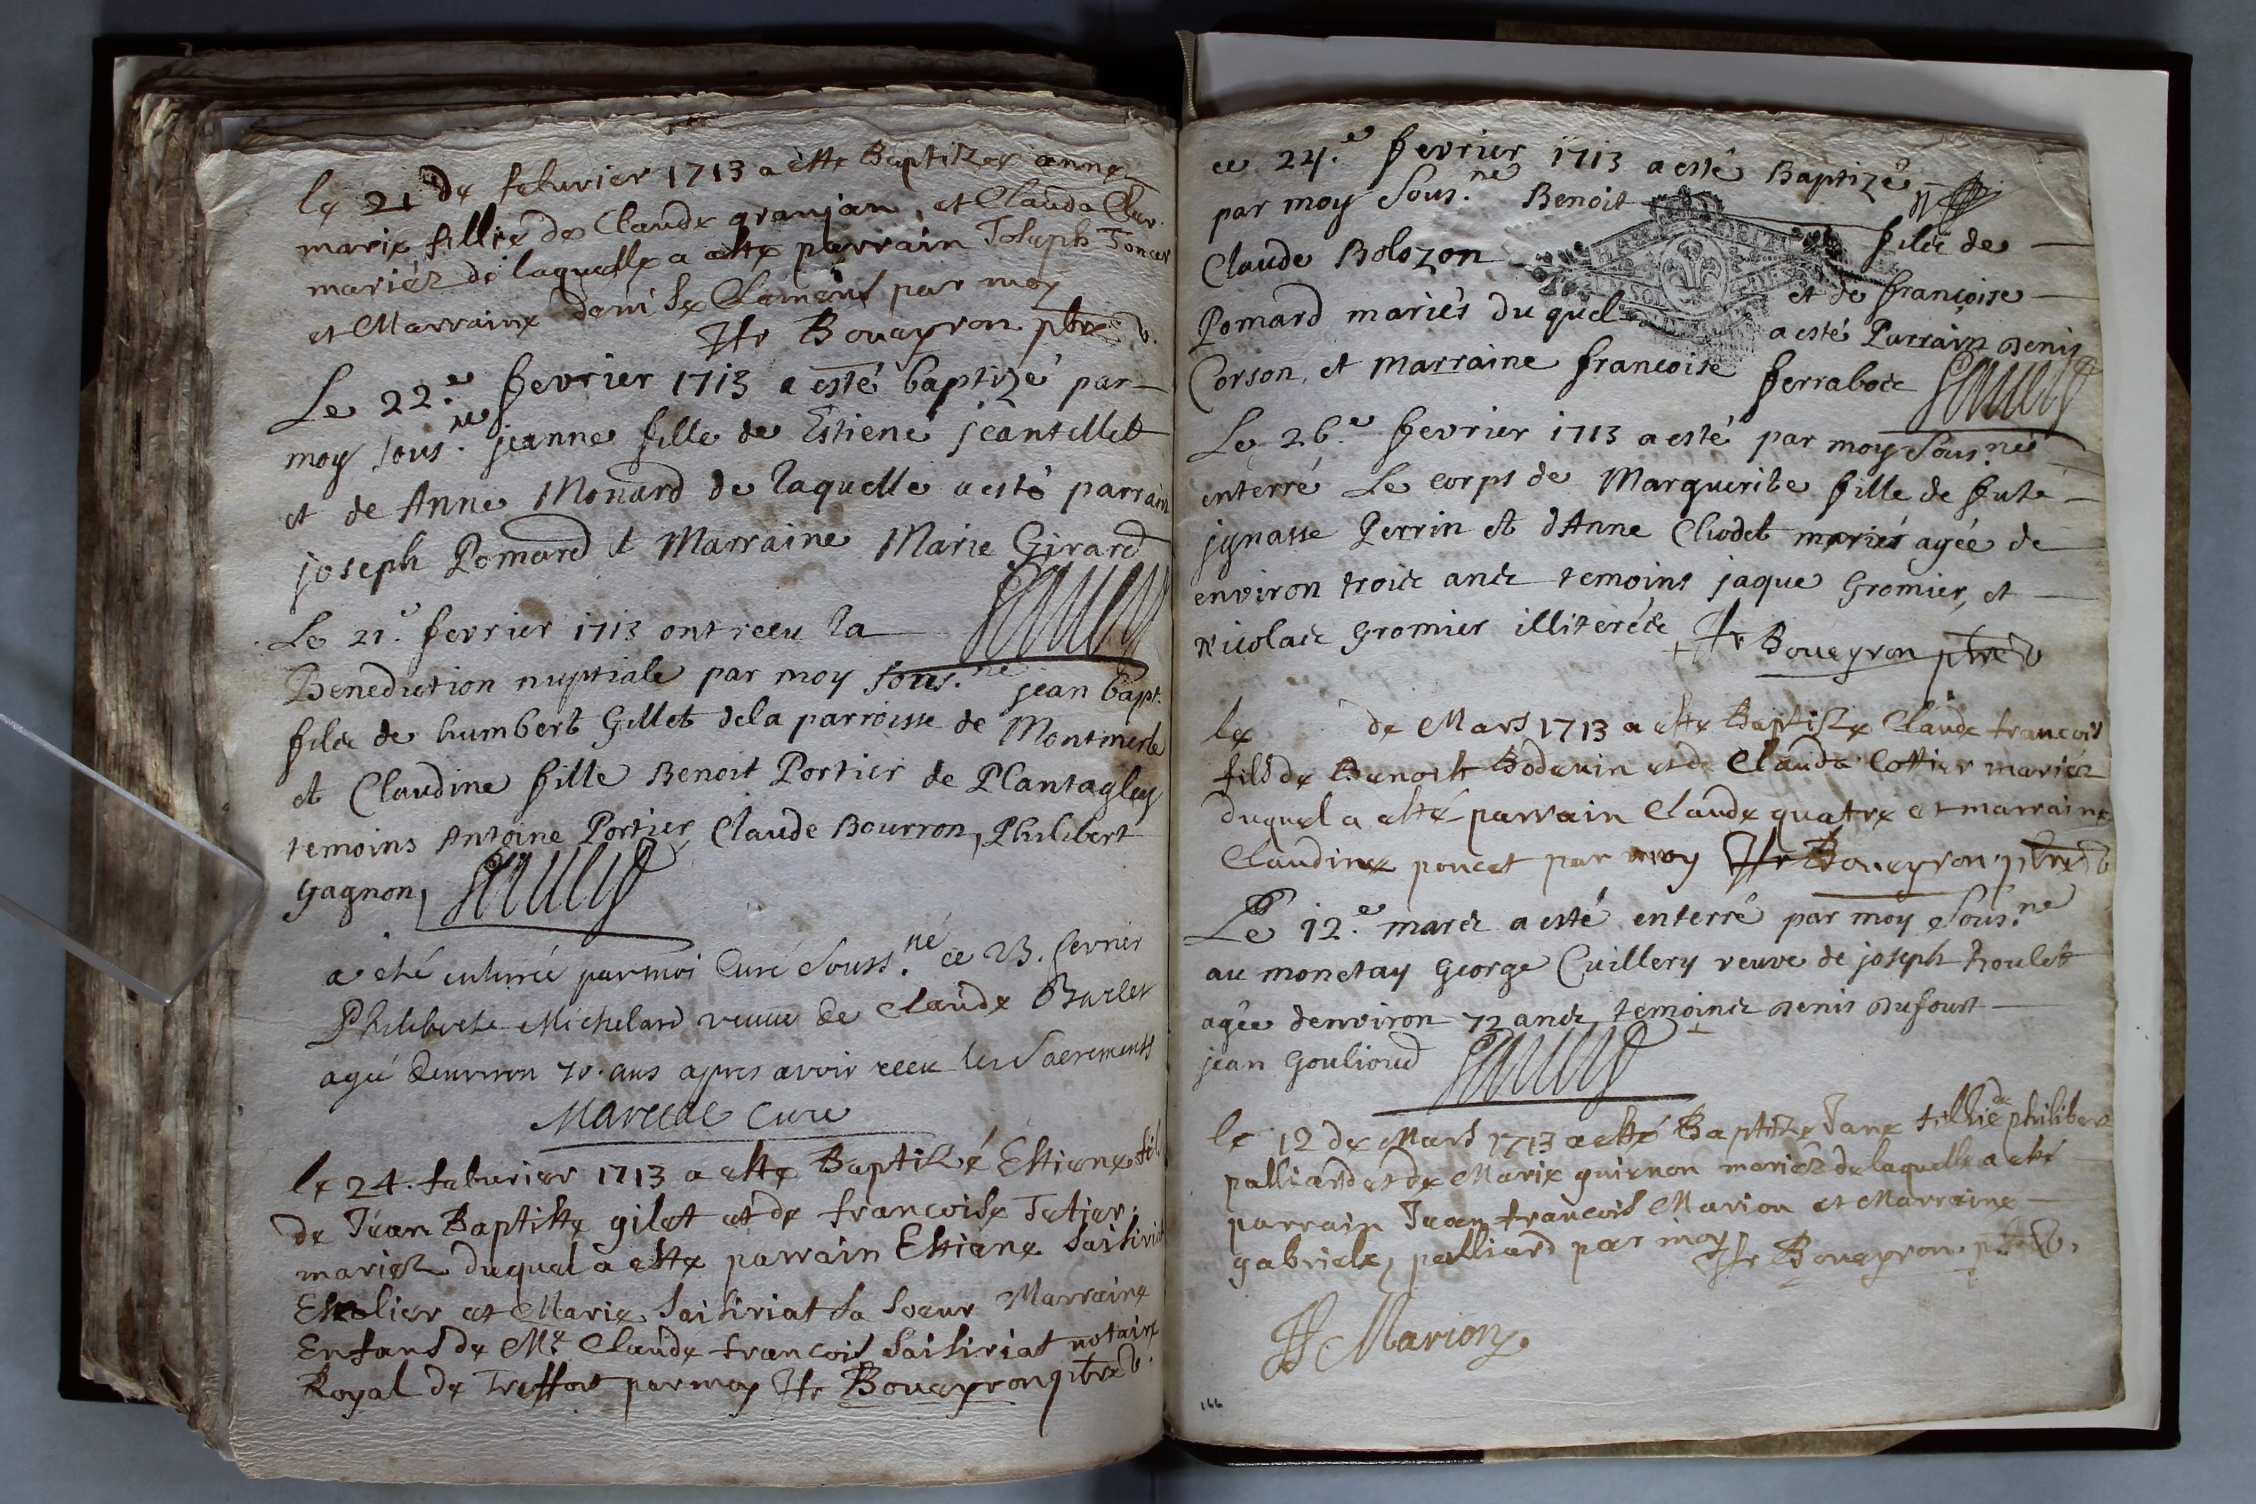 le 21e de feburier 1713 a este Baptizee anne
marie fillie de Claude granjan, et Clauda Cler.
mariéz de laquelle a este parrain Joseph Poncet
et Marraine denise Clement par moy
Bouveyron ptre v.
Le 22.e fevrier 1713 a esté baptizé par
moy sous.né jeanne fille de Estiene jeantellet
et de Anne Monard de laquelle a esté parrain
joseph Pomard et Marraine Marie Girard
Le 21.e fevrier 1713 ont recu la
Benediction nuptiale par moy sous.né jean bapt.
filz de humbert Gillet de la parroisse de Montmerle
et Claudine fille Benoit Portier de Plantagley
temoins Antoine Portier, Claude Bourron, Philibert
Gagnon,
a été enterrée par moi Curé Souss.né ce 23. fevrier
Philiberte Michelard veuve de Claude Barlet
agée denviron 70. ans apres avoir receu les Sacrements
Marechal Curé
le 24. feburier 1713 a este Baptizé Estiene fil
de Jean Baptiste gilet et de francoise Tetier.
mariez duquel à este parrain Estiene Saisiriat
Escolier et Marie Saisiriat sa soeur Marraine
Enfans de Mr. Claude francois Saisiriat notaire
Royal de Treffort par moy Bouveyron ptre v.
ce 24.e fevrier 1713 a esté Baptizé
par moy Sous.né Benoit
Claude Bolozon filz de
Pomard mariés du quel et de françoise
a esté Parrain Denis
Corson, et Marraine françoise Ferraboz
Le 26.e fevrier 1713 a esté par moy Sous.né
enterré Le corps de Marguerite fille de fut
jgnasse Perrin et d'Anne Chodet mariés agée de
environ trois anz temoins jaque Gromier, et
Nicolas Gromier illiterés
Bouveyron ptre v
le de Mars 1713 a este Baptize Claude francois
fils de Benoit Bodevin et de Clauda Cottier mariéz
duquel a esté parrain Claude quatre et marraine
Claudine poncet par moy Bouveyron ptre v
Le 12.e mars a esté enterré par moy Sous.né
au monetay George Cuillery veuve de joseph Roulet
agée denviron 72 anz temoins Denis Dufour
jean Goulioud
le 12 de Mars 1713 a esté Baptize Jane fillie de philibert
palliard et de Marie guienon mariéz de laquelle a esté
parrain Jean francois Marion et Marraine
gabriele, palliard par moy Bouveyron ptre v.
Marion
166